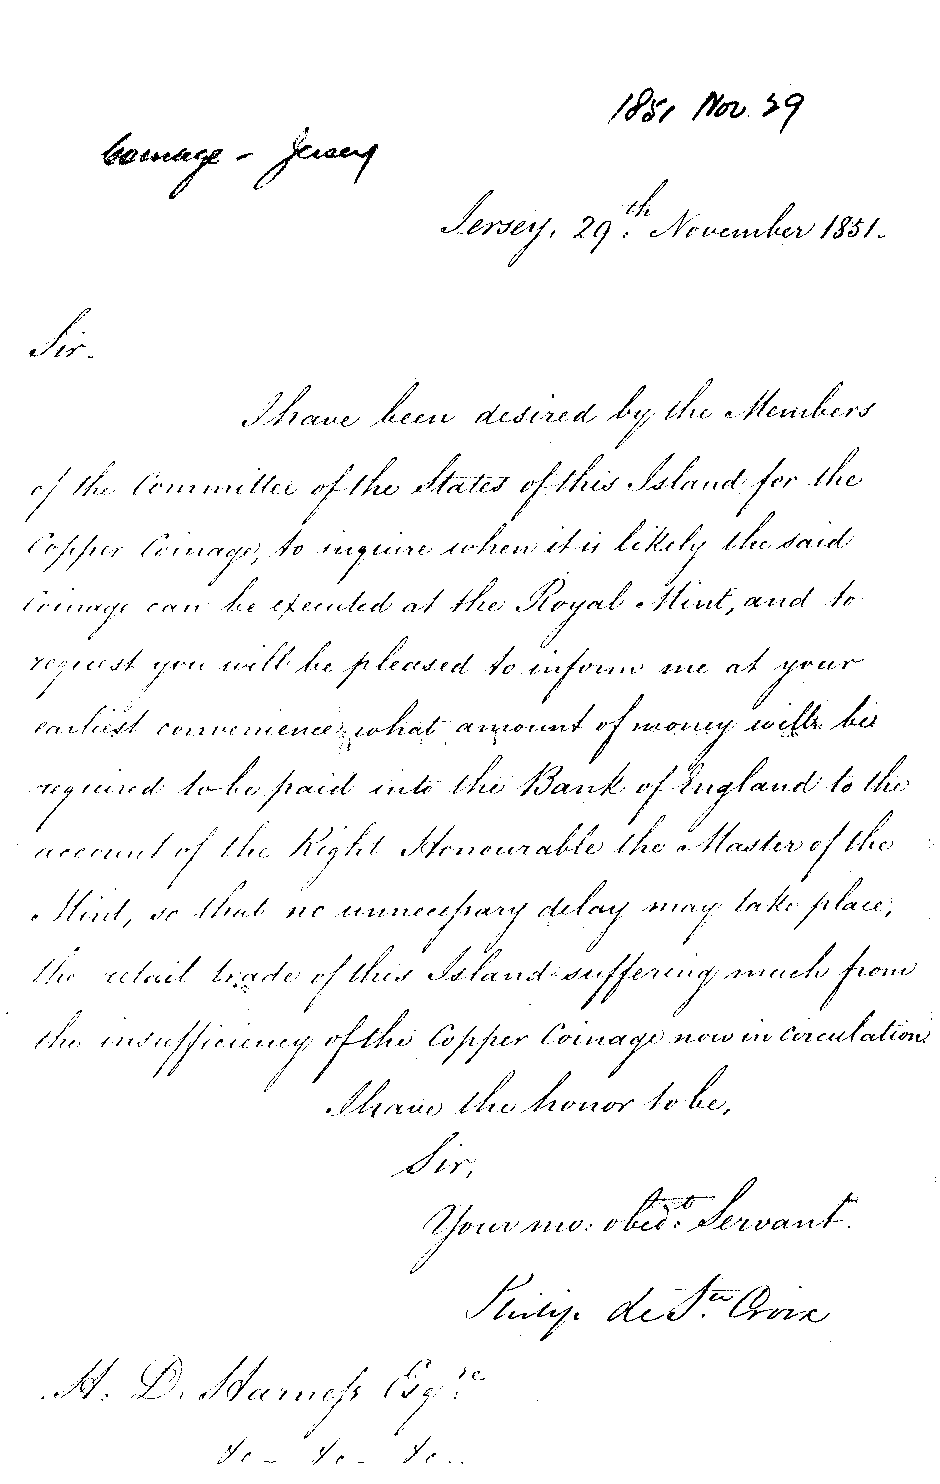 1851 Nov. 29
Coinage - Jersey
Jersey, 29th November 1851.
Sir.
I have been desired by the Members
of the Committee of the States of this Island for the
Copper Coinage, to inquire when it is likely the said
Coinage can be executed at the Royal Mint, and to
request you will be pleased to inform me at your
earliest convenience, what amount of money will be
required to be paid into the Bank of England to the
account of the Right Honourable the Master of the
Mint, so that no unnecessary delay may take place,
the retail trade of this Island suffering much from
the insufficiency of the Copper Coinage now in circulation
I have the honor to be,
Sir,
Your mo: obedt. Servant.
Philip de Ste. Croix
H. D. Harness Esqre.
&c - &c - &c -